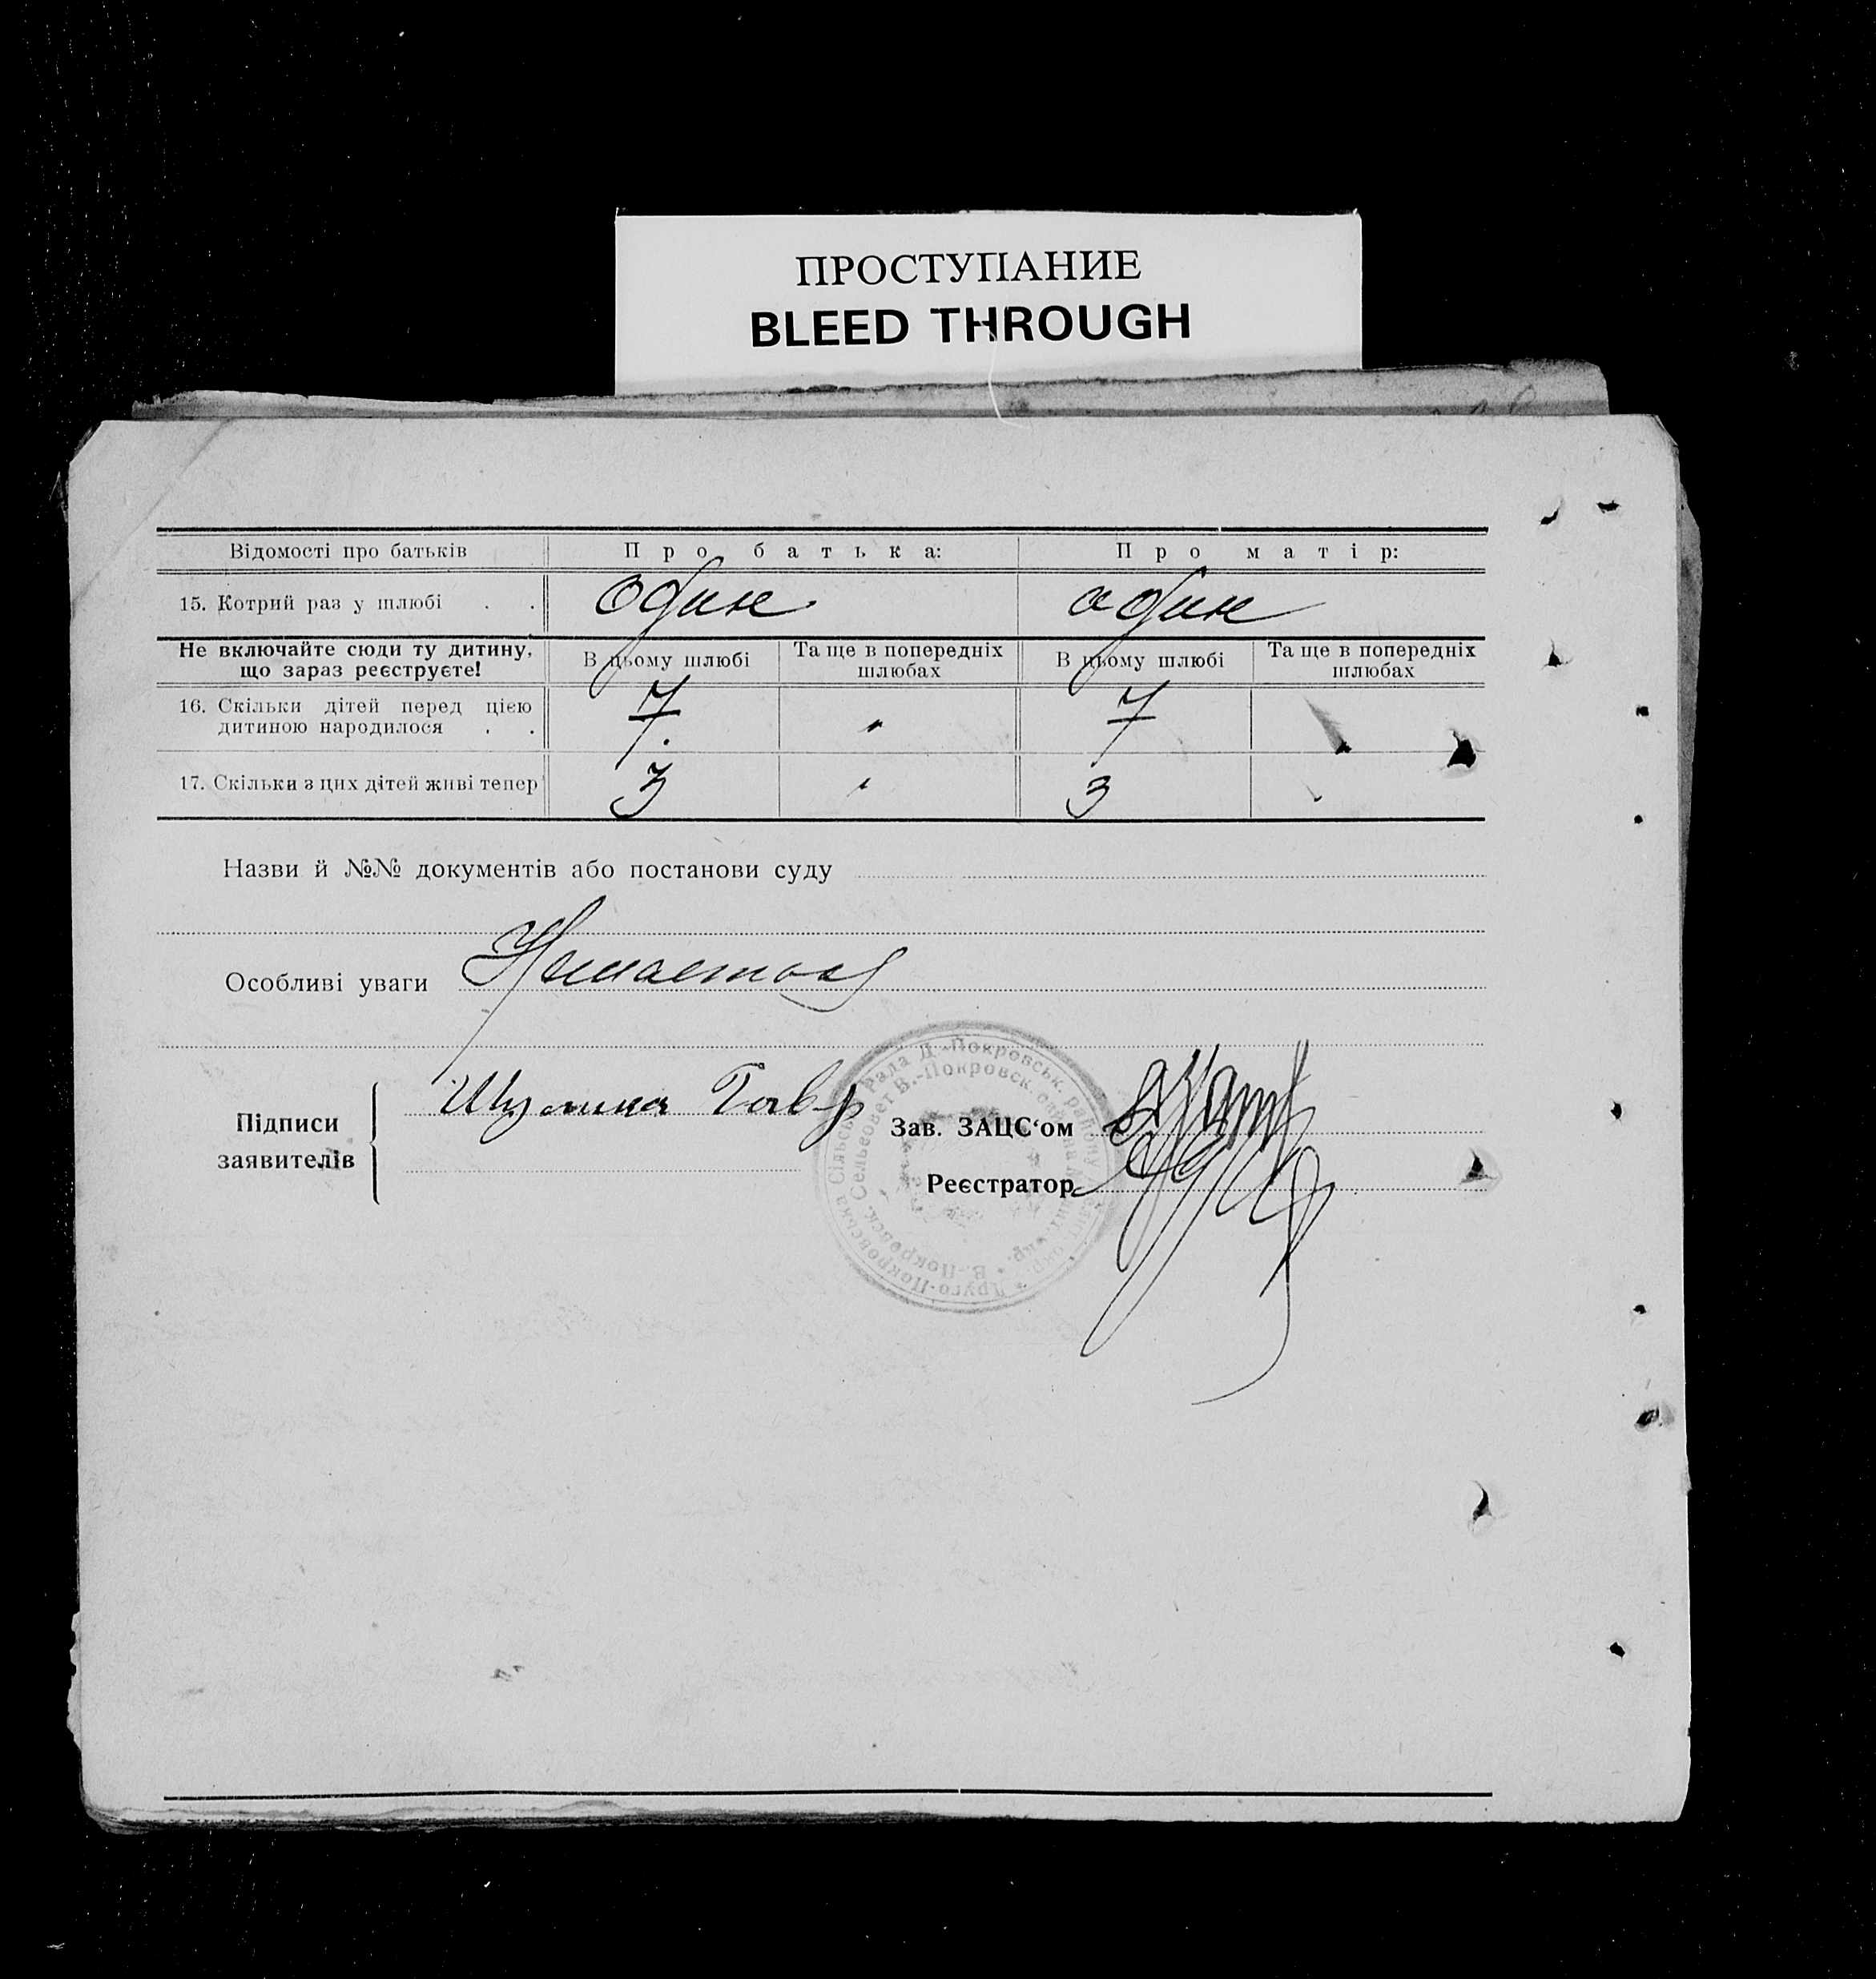 ПРОСТУПАНИЕ
BLEED THROUGH
Відомості про батьків Про батька: Про матір:
15. Котрий раз у шлюбі . . один один
Не включайте сюди ту дитину, що зараз реєструєте! В цьому шлюбі Та ще в попередніх шлюбах В цьому шлюбі Та ще в попередніх шлюбах
16. Скільки дітей перед цією дитиною народилося . . 7. " 7
17. Скільки з цих дітей живі тепер 3 " 3 "
Назви й №№ документів або постанови суду
Особливі уваги
Підписи заявителів
Рада Д.-Покровськ. району
Сельсовет В.-Покровск.
Друго-Покровська Сільська
Зав. ЗАЦС‘ом
Реєстратор